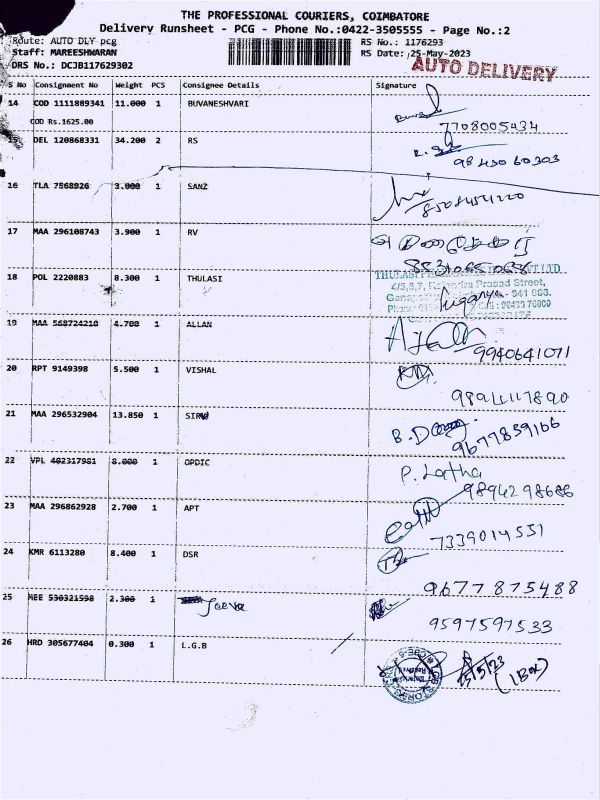 THE PROFESSIONAL COURIERS, COIMBATORE
Delivery Runsheet - PCG - Phone No.:0422-3505555 - Page No.:2
Route: AUTO DLY pcg RS No.: 1176293
Staff: MAREESHWARAN RS Date: 25-May-2023
DRS No.: DCJB117629302 AUTO DELIVERY
S No Consignment No Weight PCS Consignee Details Signature
14 COD 1111889341 11.000 1 BUVANESHVARI
COD Rs.1625.00 7708005434
15 DEL 120868331 34.200 2 RS
98430 60303
16 TLA 7568926 3.000 1 SANZ
17 MAA 296108743 3.900 1 RV
18 POL 2220883 8.300 1 THULASI
19 MAA 568724210 4.700 1 ALLAN
9940641071
20 RPT 9149398 5.500 1 VISHAL
21 MAA 296532904 13.850 1
9677839166
22 VPL 402317981 8.000 1 OPDIC P. Latha
9894298686
23 MAA 296862928 2.700 1 APT
7339014551
24 KMR 6113280 8.400 1 DSR
9677875488
25 MEE 530321598 2.300 1 Jeeva
9597597533
26 HRD 305677404 0.300 1 L.G.B
25/5/23 (1 Box)